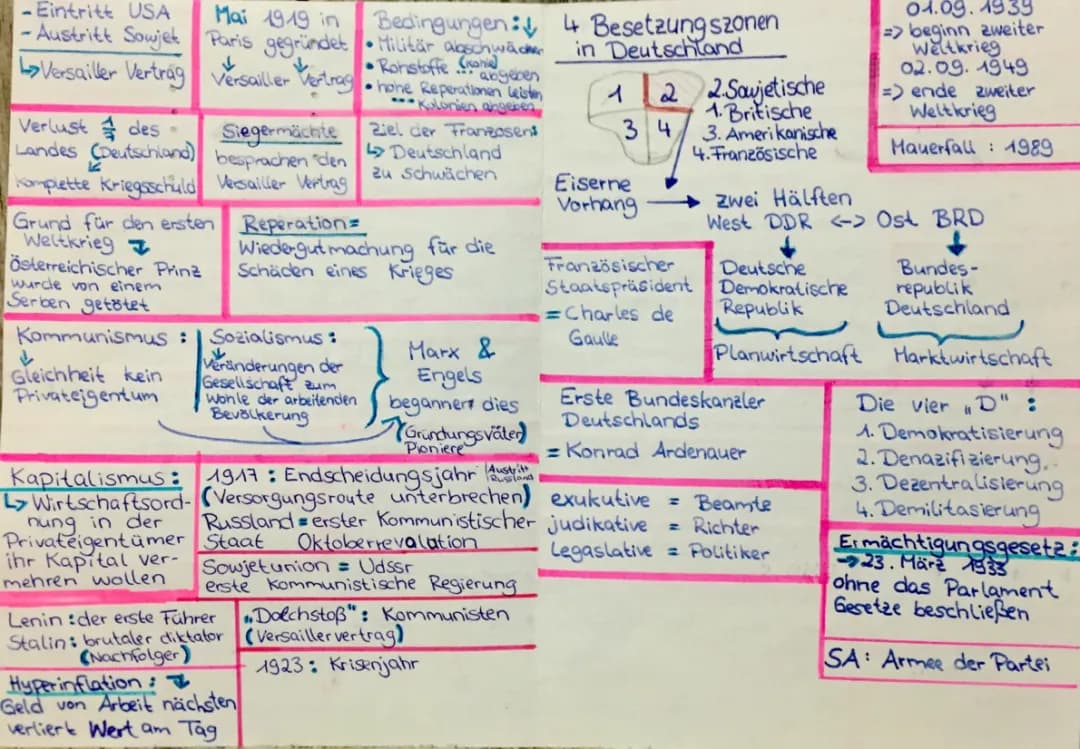 - Eintritt USA
- Austritt Sowjet
↳ Versailler Vertrag
Mai 1919 in
Paris gegründet
Versailler Vertrag
Bedingungen :↓
• Militär abschwächen
• Rohstoffe (Kohle)
... abgeben
• hohe Reperationen leisten
... Kolonien abgeben
Verlust 1/7 des
Landes (Deutschland)
komplette Kriegsschuld
Siegermächte
besprachen den
Versailler Vertrag
Ziel der Franzosen:
↳ Deutschland
zu schwächen
Grund für den ersten
Weltkrieg
Österreichischer Prinz
wurde von einem
Serben getötet
Reperation=
Wiedergutmachung für die
Schäden eines Krieges
Kommunismus :
Gleichheit kein
Privateigentum
Sozialismus :
Veränderungen der
Gesellschaft zum
wohle der arbeitenden
Bevölkerung
Marx &
Engels
begannen dies
(Gründungsväter)
Pioniere
Kapitalismus :
↳ Wirtschaftsord-
nung in der
Privateigentümer
ihr Kapital ver-
mehren wollen
1917 : Endscheidungsjahr (Austritt
Russland)
(Versorgungsroute unterbrechen)
Russland = erster Kommunistischer
Staat Oktoberrevalation
Sowjetunion = Udssr
erste Kommunistische Regierung
Lenin : der erste Führer
Stalin : brutaler diktator
(Nachfolger)
"Dolchstoß" : Kommunisten
(Versaillervertrag)
1923 : Krisenjahr
Hyperinflation :
Geld von Arbeit nächsten
verliert Wert am Tag
4 Besetzungszonen
in Deutschland
1 2
3 4
2. Sowjetische
1. Britische
3. Amerikanische
4. Französische
Eiserne
Vorhang → zwei Hälften
West DDR <-> Ost BRD
Deutsche
Demokratische
Republik
Planwirtschaft
Bundes-
republik
Deutschland
Marktwirtschaft
01.09.1939
=> beginn zweiter
Weltkrieg
02.09.1949
=> ende zweiter
Weltkrieg
Mauerfall : 1989
Französischer
Staatspräsident
= Charles de
Gaulle
Erste Bundeskanzler
Deutschlands
= Konrad Ardenauer
Die vier „D" :
1. Demokratisierung
2. Denazifizierung
3. Dezentralisierung
4. Demilitasierung
exukutive = Beamte
judikative = Richter
Legaslative = Politiker
Ermächtigungsgesetz :
→ 23. März 1933
ohne das Parlament
Gesetze beschließen
SA : Armee der Partei